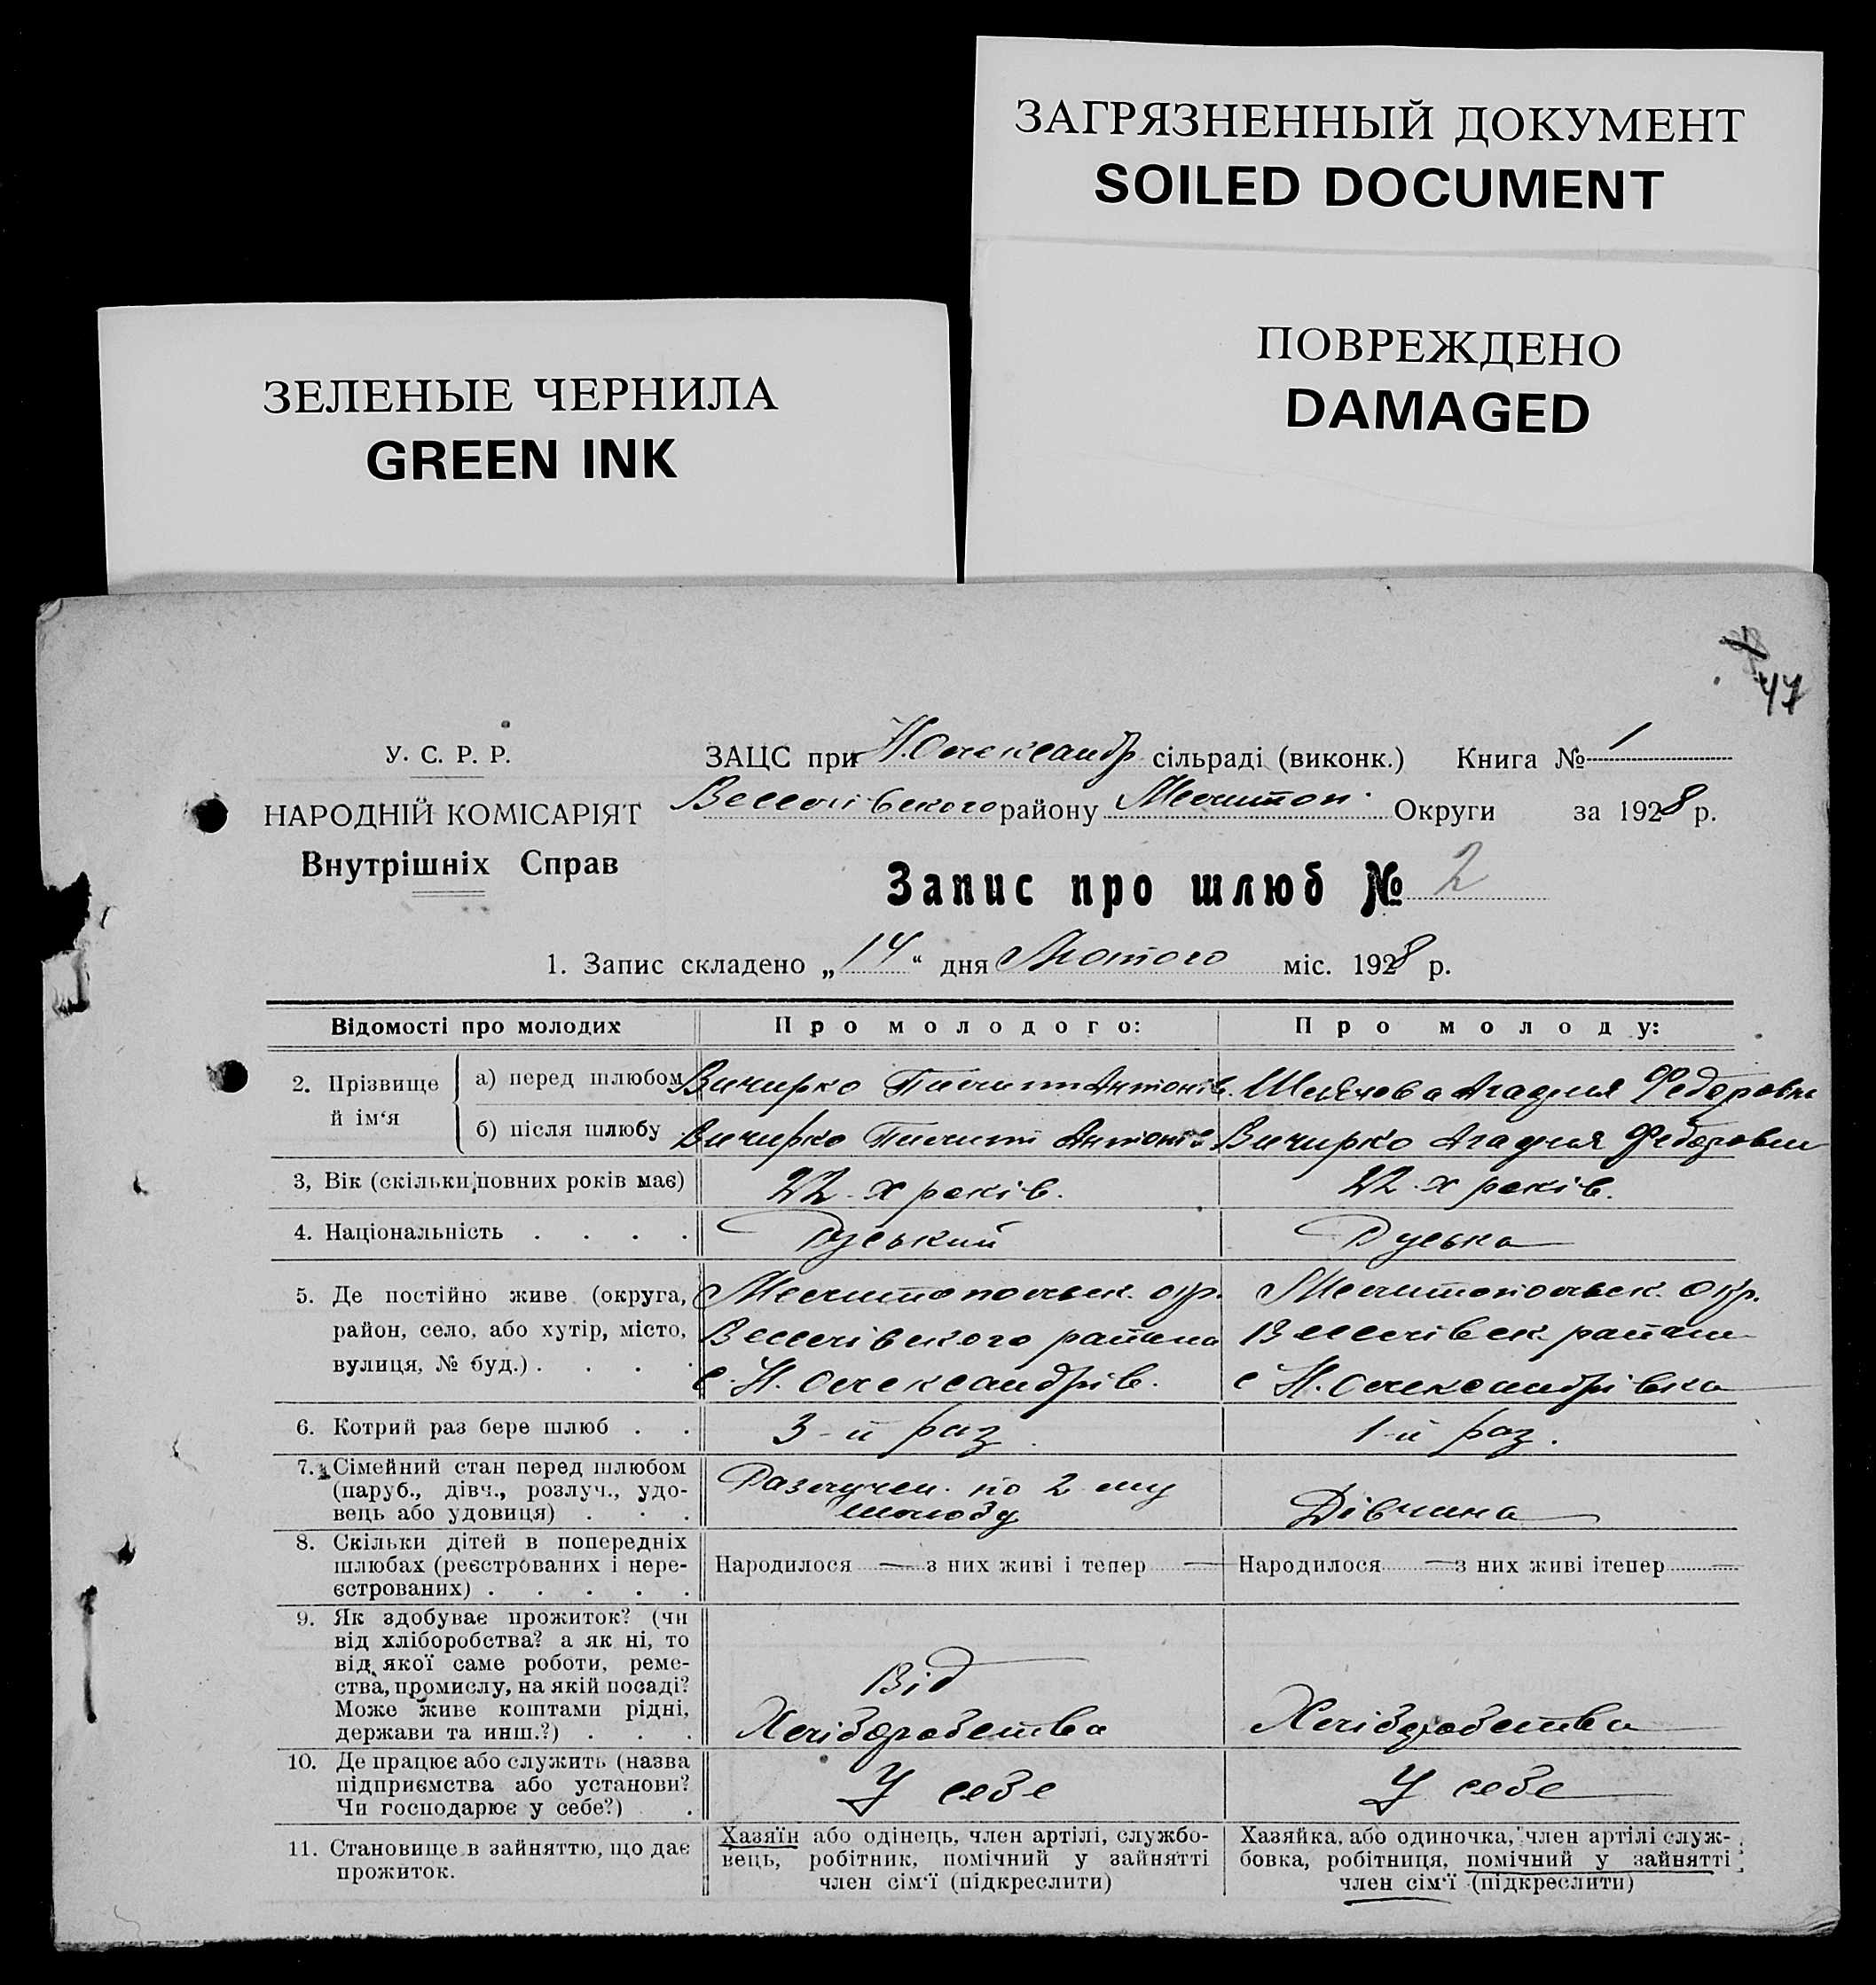 ЗАГРЯЗНЕННЫЙ ДОКУМЕНТ
SOILED DOCUMENT
ПОВРЕЖДЕНО
DAMAGED
ЗЕЛЕНЫЕ ЧЕРНИЛА
GREEN INK
47
У. С. Р. Р.
НАРОДНІЙ КОМІСАРІЯТ
Внутрішніх Справ
ЗАЦС при Н.Олександр сільраді (виконк.) Книга № 1
Веселівського району Мелитоп. Округи за 1928 р.
Запис про шлюб № 2
1. Запис складено „14“ дня Лютого міс. 1928 р.
Відомості про молодих Про молодого: Про молоду:
2. Прізвище й ім‘я
а) перед шлюбом Вичирко Пилип Антонів. Агафия Федоровна
б) після шлюбу Вичирко Пилип Антонів Вичирко Агафия Федоровна
3, Вік (скільки повних років має) 22-х років. 22-х років.
4. Національність . . . . Руський Руська
5. Де постійно живе (округа, Мелитопольск. окр. Мелитопольск. окр.
район, село, або хутір, місто, Веселівского района Веселівск района
вулиця, № буд.) . . . . с. Н. Олександрів. с Н. Олександрівка
6. Котрий раз бере шлюб . . 3-й раз. 1-й раз.
7. Сімейний стан перед шлюбом
(паруб., дівч., розлуч., удо-
вець або удовиця) . . .
Разлучен. по 2 му
шлюбу
Дівчина
8. Скільки дітей в попередніх
шлюбах (реєстрованих і нере-
єстрованих) . . . . .
Народилося — з них живі і тепер —
Народилося — з них живі ітепер —
9. Як здобуває прожиток? (чи
від хліборобства? а як ні, то
від якої саме роботи, реме-
ства, промислу, на якій посаді?
Може живе коштами рідні,
держави та инш.?) . . .
Від
Хліборобства
Хліборобства
10. Де працює або служить (назва
підприємства або установи?
Чи господарює у себе?) .
У себе
У себе
11. Становище в зайняттю, що дає
прожиток.
Хазяїн або одінець, член артілі, службо-
вець, робітник, помічний у зайнятті
член сім‘ї (підкреслити)
Хазяйка, або одиночка, член артілі служ-
бовка, робітниця, помічний у зайнятті
член сім‘ї (підкреслити)